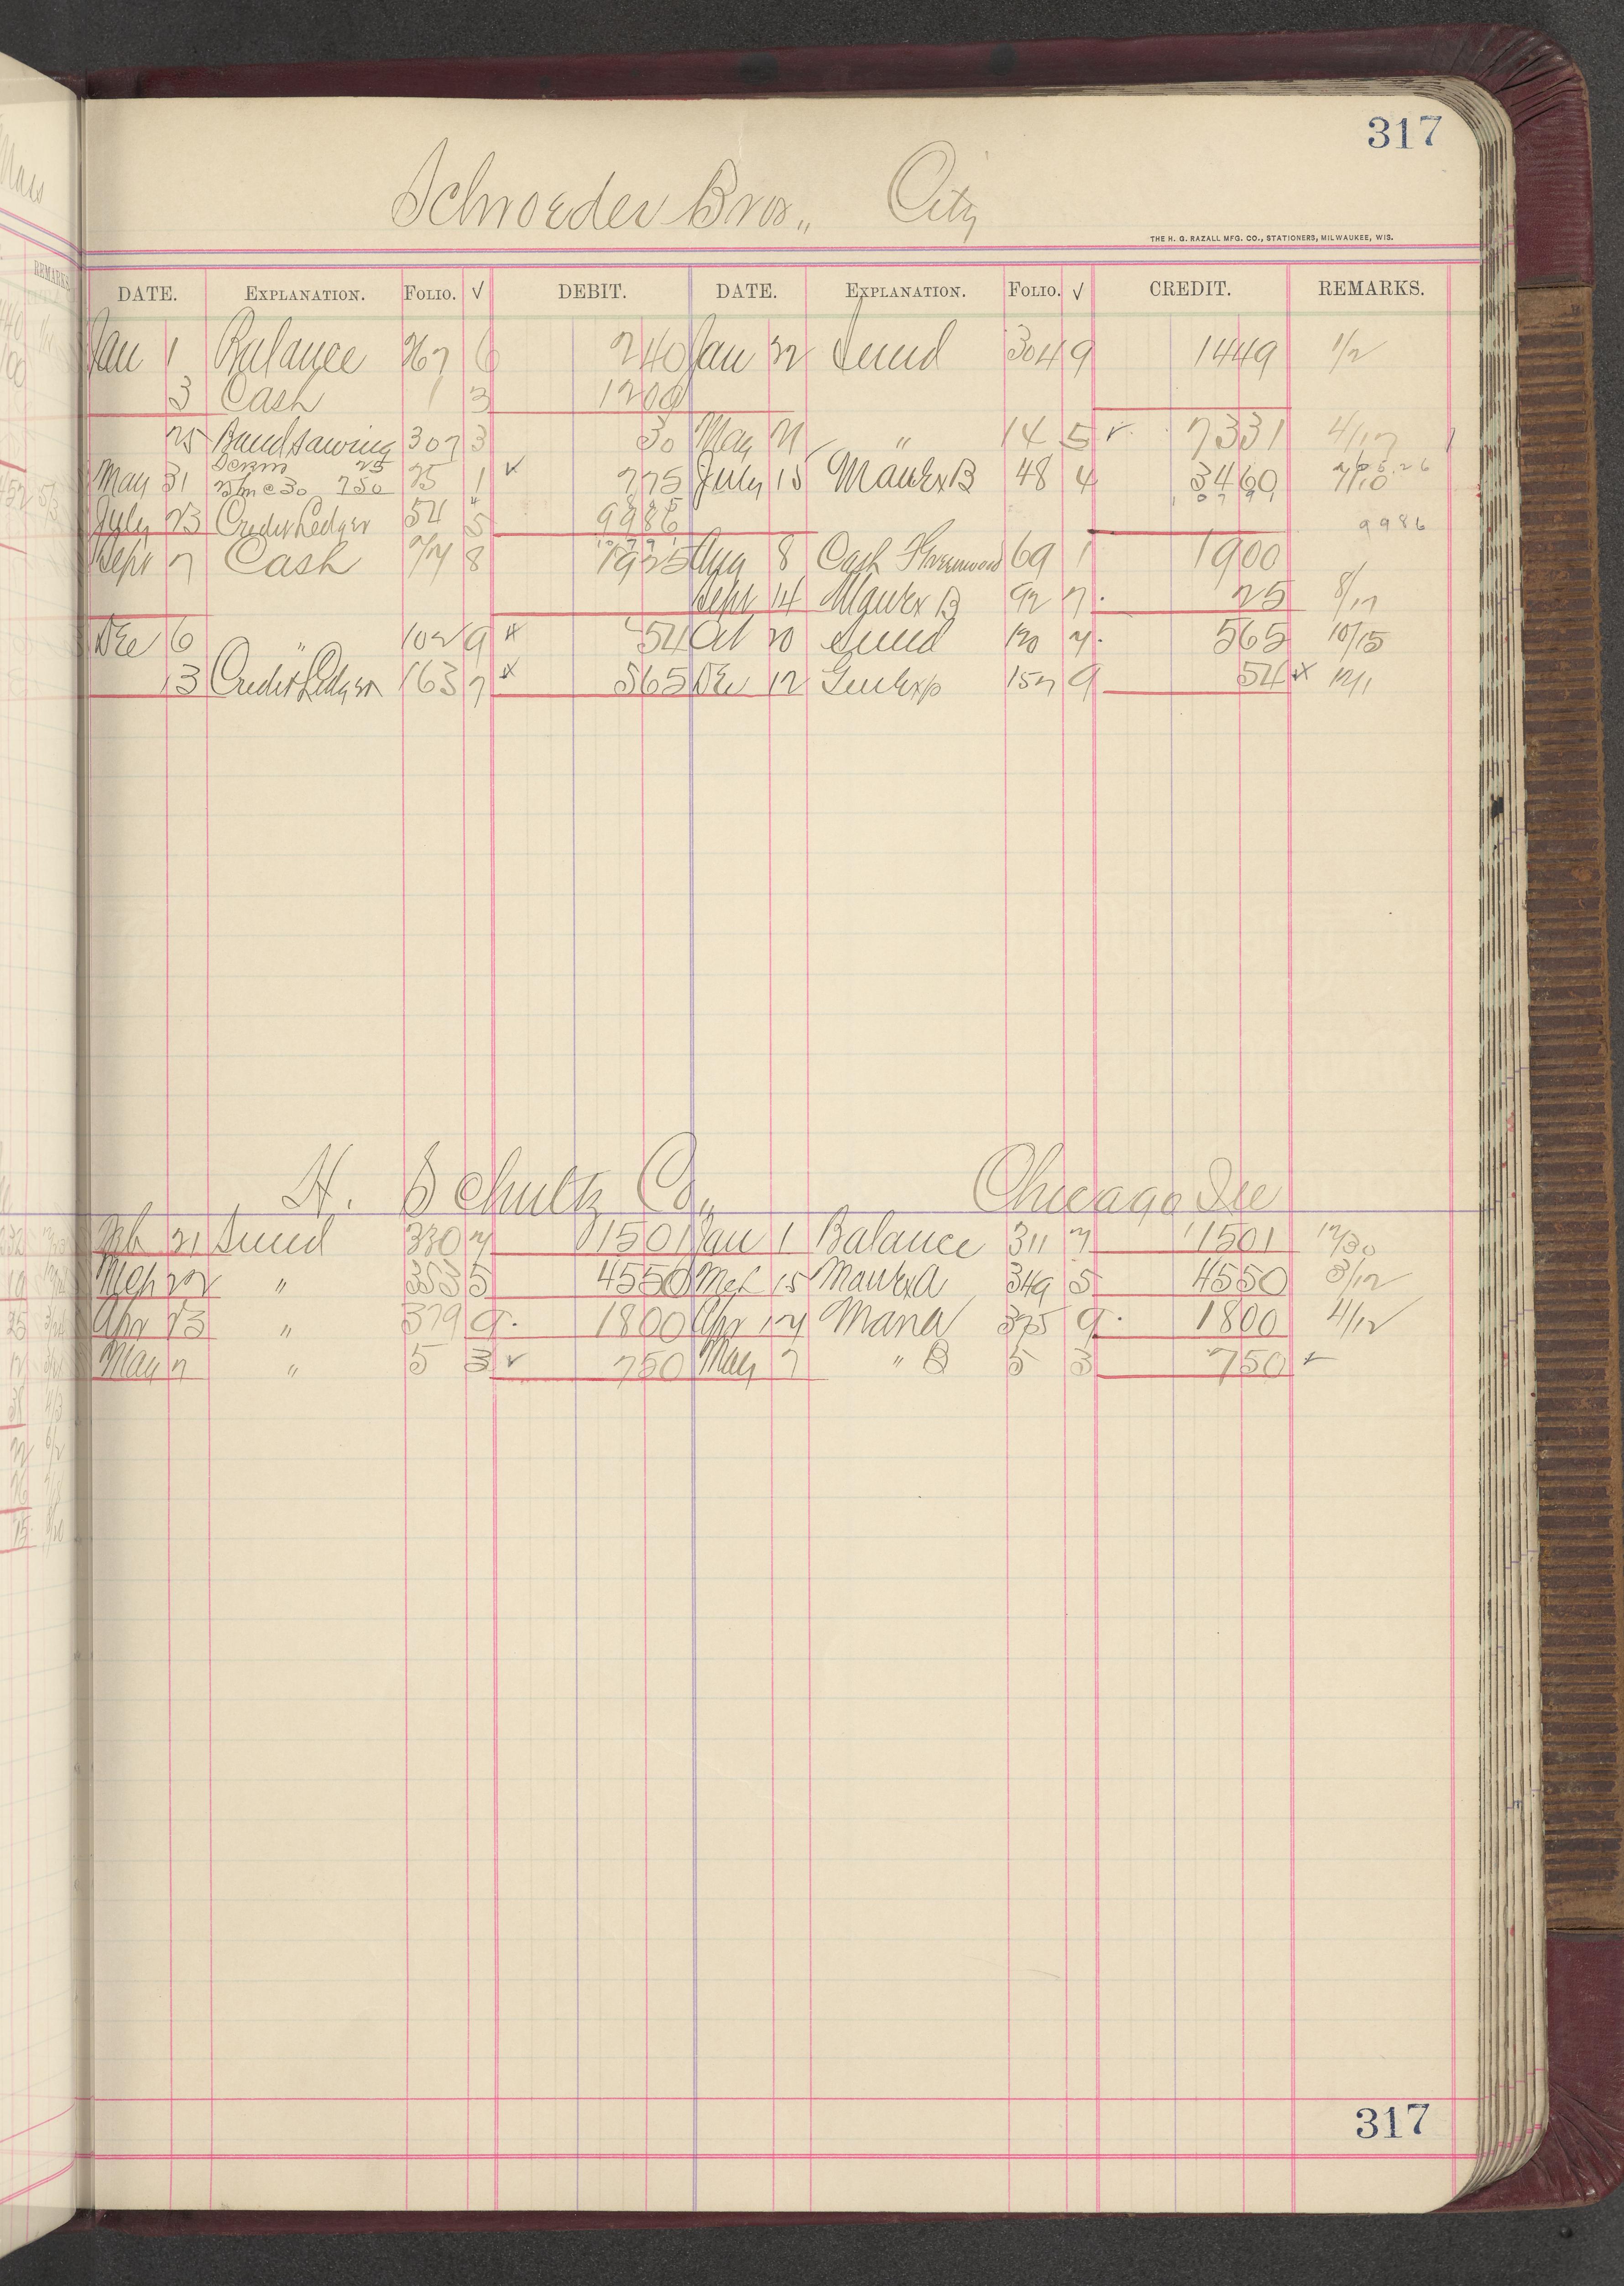 317
Schroeder Bros., City
THE H. G. RAZALL MFG. CO., STATIONERS, MILWAUKEE, WIS.
DATE. EXPLANATION. FOLIO. √ DEBIT. DATE. EXPLANATION. FOLIO. √ CREDIT. REMARKS.
Jan 1 Balance 267 6 240 Jan 22 Sund 304 9 1449 1/2
3 Cash 1 3 1209
25 Bandsawing 307 3 30 May 21 " 14 5 7331 4/17
25
May 31 25 hrs @ 30 750 25 1 775 July 15 ManEx B 48 4 3460 7/10
July 23 Credit Ledger 54 5 9986 9986
Sept 7 Cash 8 1925 Aug 8 Cash 69 1 1900
Sept 14 ManEx B 92 7 25 8/17
Dec 6 " 102 9 54 Oct 20 Sund 120 565 10/15
13 Credit Ledger 163 7 565 Dec 12 GenExp 152 9 54 12/1
H. Schultz Co., Chicago Ill
Feb 21 Sund 330 1501 Jan 1 Balance 311 1501 12/30
Mch 22 " 353 5 4550 Mch 15 ManExA 349 5 4550 3/12
Apr 23 " 379 9 1800 Apr ManA 375 9 1800 4/12
May 7 " 5 3 750 May 7 " B 5 3 750
317